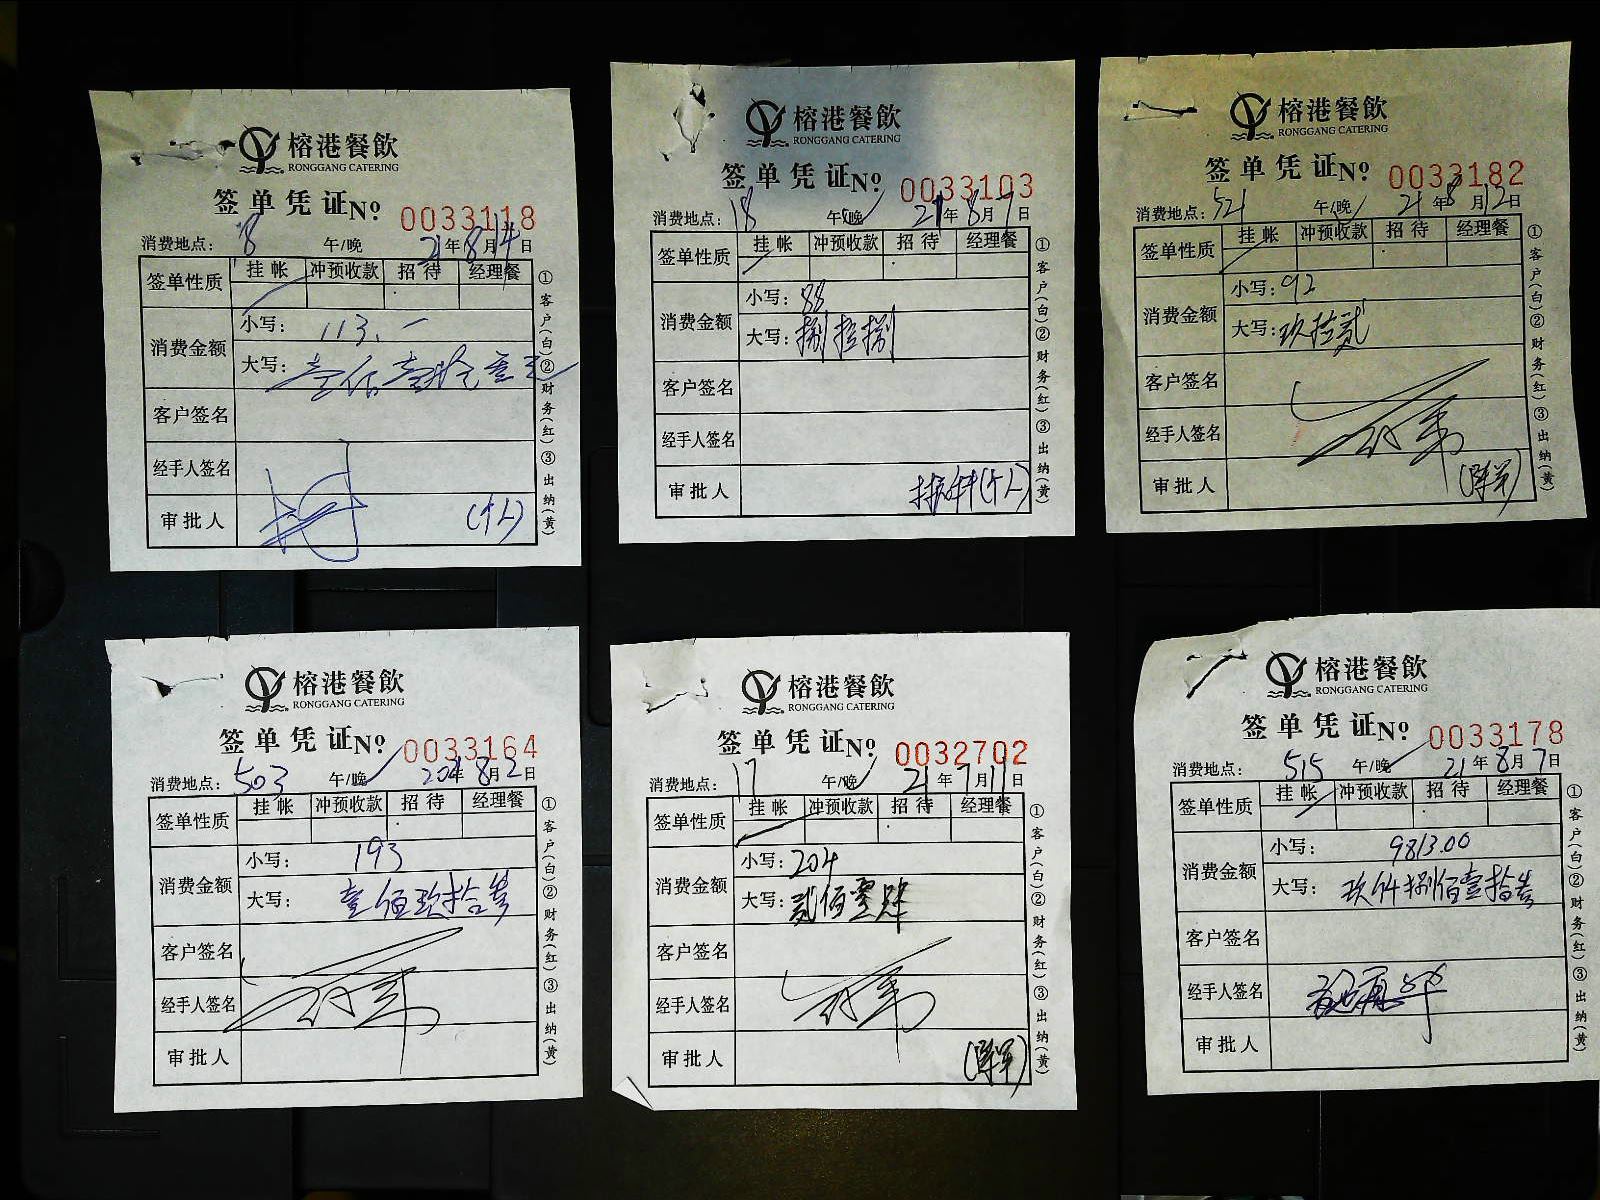 榕港餐飲
RONGGANG CATERING
签单凭证 Nº 0033118
消费地点: 8 午/晚 21年8月14日
签单性质 挂帐 冲预收款 招待 经理餐
消费金额
小写: 113.一
大写: 壹佰壹拾叁元
客户签名
经手人签名
审批人 (个人)
①客户(白)②财务(红)③出纳(黄)
榕港餐飲
RONGGANG CATERING
签单凭证 Nº 0033103
消费地点: 18 午/晚 21年8月7日
签单性质 挂帐 冲预收款 招待 经理餐
消费金额
小写: 88
大写: 捌拾捌
客户签名
经手人签名
审批人 (个人)
①客户(白)②财务(红)③出纳(黄)
榕港餐飲
RONGGANG CATERING
签单凭证 Nº 0033182
消费地点: 521 午/晚 21年8月12日
签单性质 挂帐 冲预收款 招待 经理餐
消费金额
小写: 92
大写: 玖拾贰
客户签名
经手人签名
审批人
①客户(白)②财务(红)③出纳(黄)
榕港餐飲
RONGGANG CATERING
签单凭证 Nº 0033164
消费地点: 503 午/晚 2021年8月2日
签单性质 挂帐 冲预收款 招待 经理餐
消费金额
小写: 193
大写: 壹佰玖拾叁
客户签名
经手人签名
审批人
①客户(白)②财务(红)③出纳(黄)
榕港餐飲
RONGGANG CATERING
签单凭证 Nº 0032702
消费地点: 17 午/晚 21年7月11日
签单性质 挂帐 冲预收款 招待 经理餐
消费金额
小写: 204
大写: 贰佰零肆
客户签名
经手人签名
审批人
①客户(白)②财务(红)③出纳(黄)
榕港餐飲
RONGGANG CATERING
签单凭证 Nº 0033178
消费地点: 515 午/晚 21年8月7日
签单性质 挂帐 冲预收款 招待 经理餐
消费金额
小写: 9813.00
大写: 玖仟捌佰壹拾叁
客户签名
经手人签名
审批人
①客户(白)②财务(红)③出纳(黄)